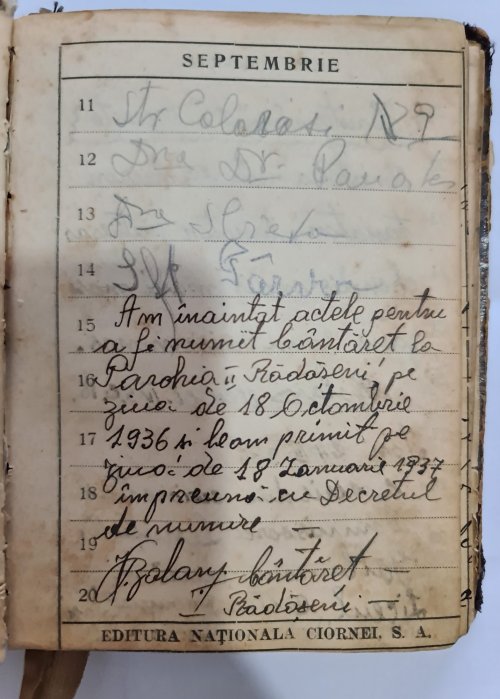 SEPTEMBRIE
11 Str Calarasi N 9
12 Dna Dr.
13 Dna
14
Am înaintat actele pentru
15
a fi numit Cântăreț la
16 Parohia II Rădășeni, pe
ziua de 18 Octombrie
17 1936 și leam primit pe
ziua de 18 Ianuarie 1937
18 împreună cu Decretul
de numire —
19
Cântăret —
20 II Rădășeni —
EDITURA NAȚIONALA CIORNEI, S. A.